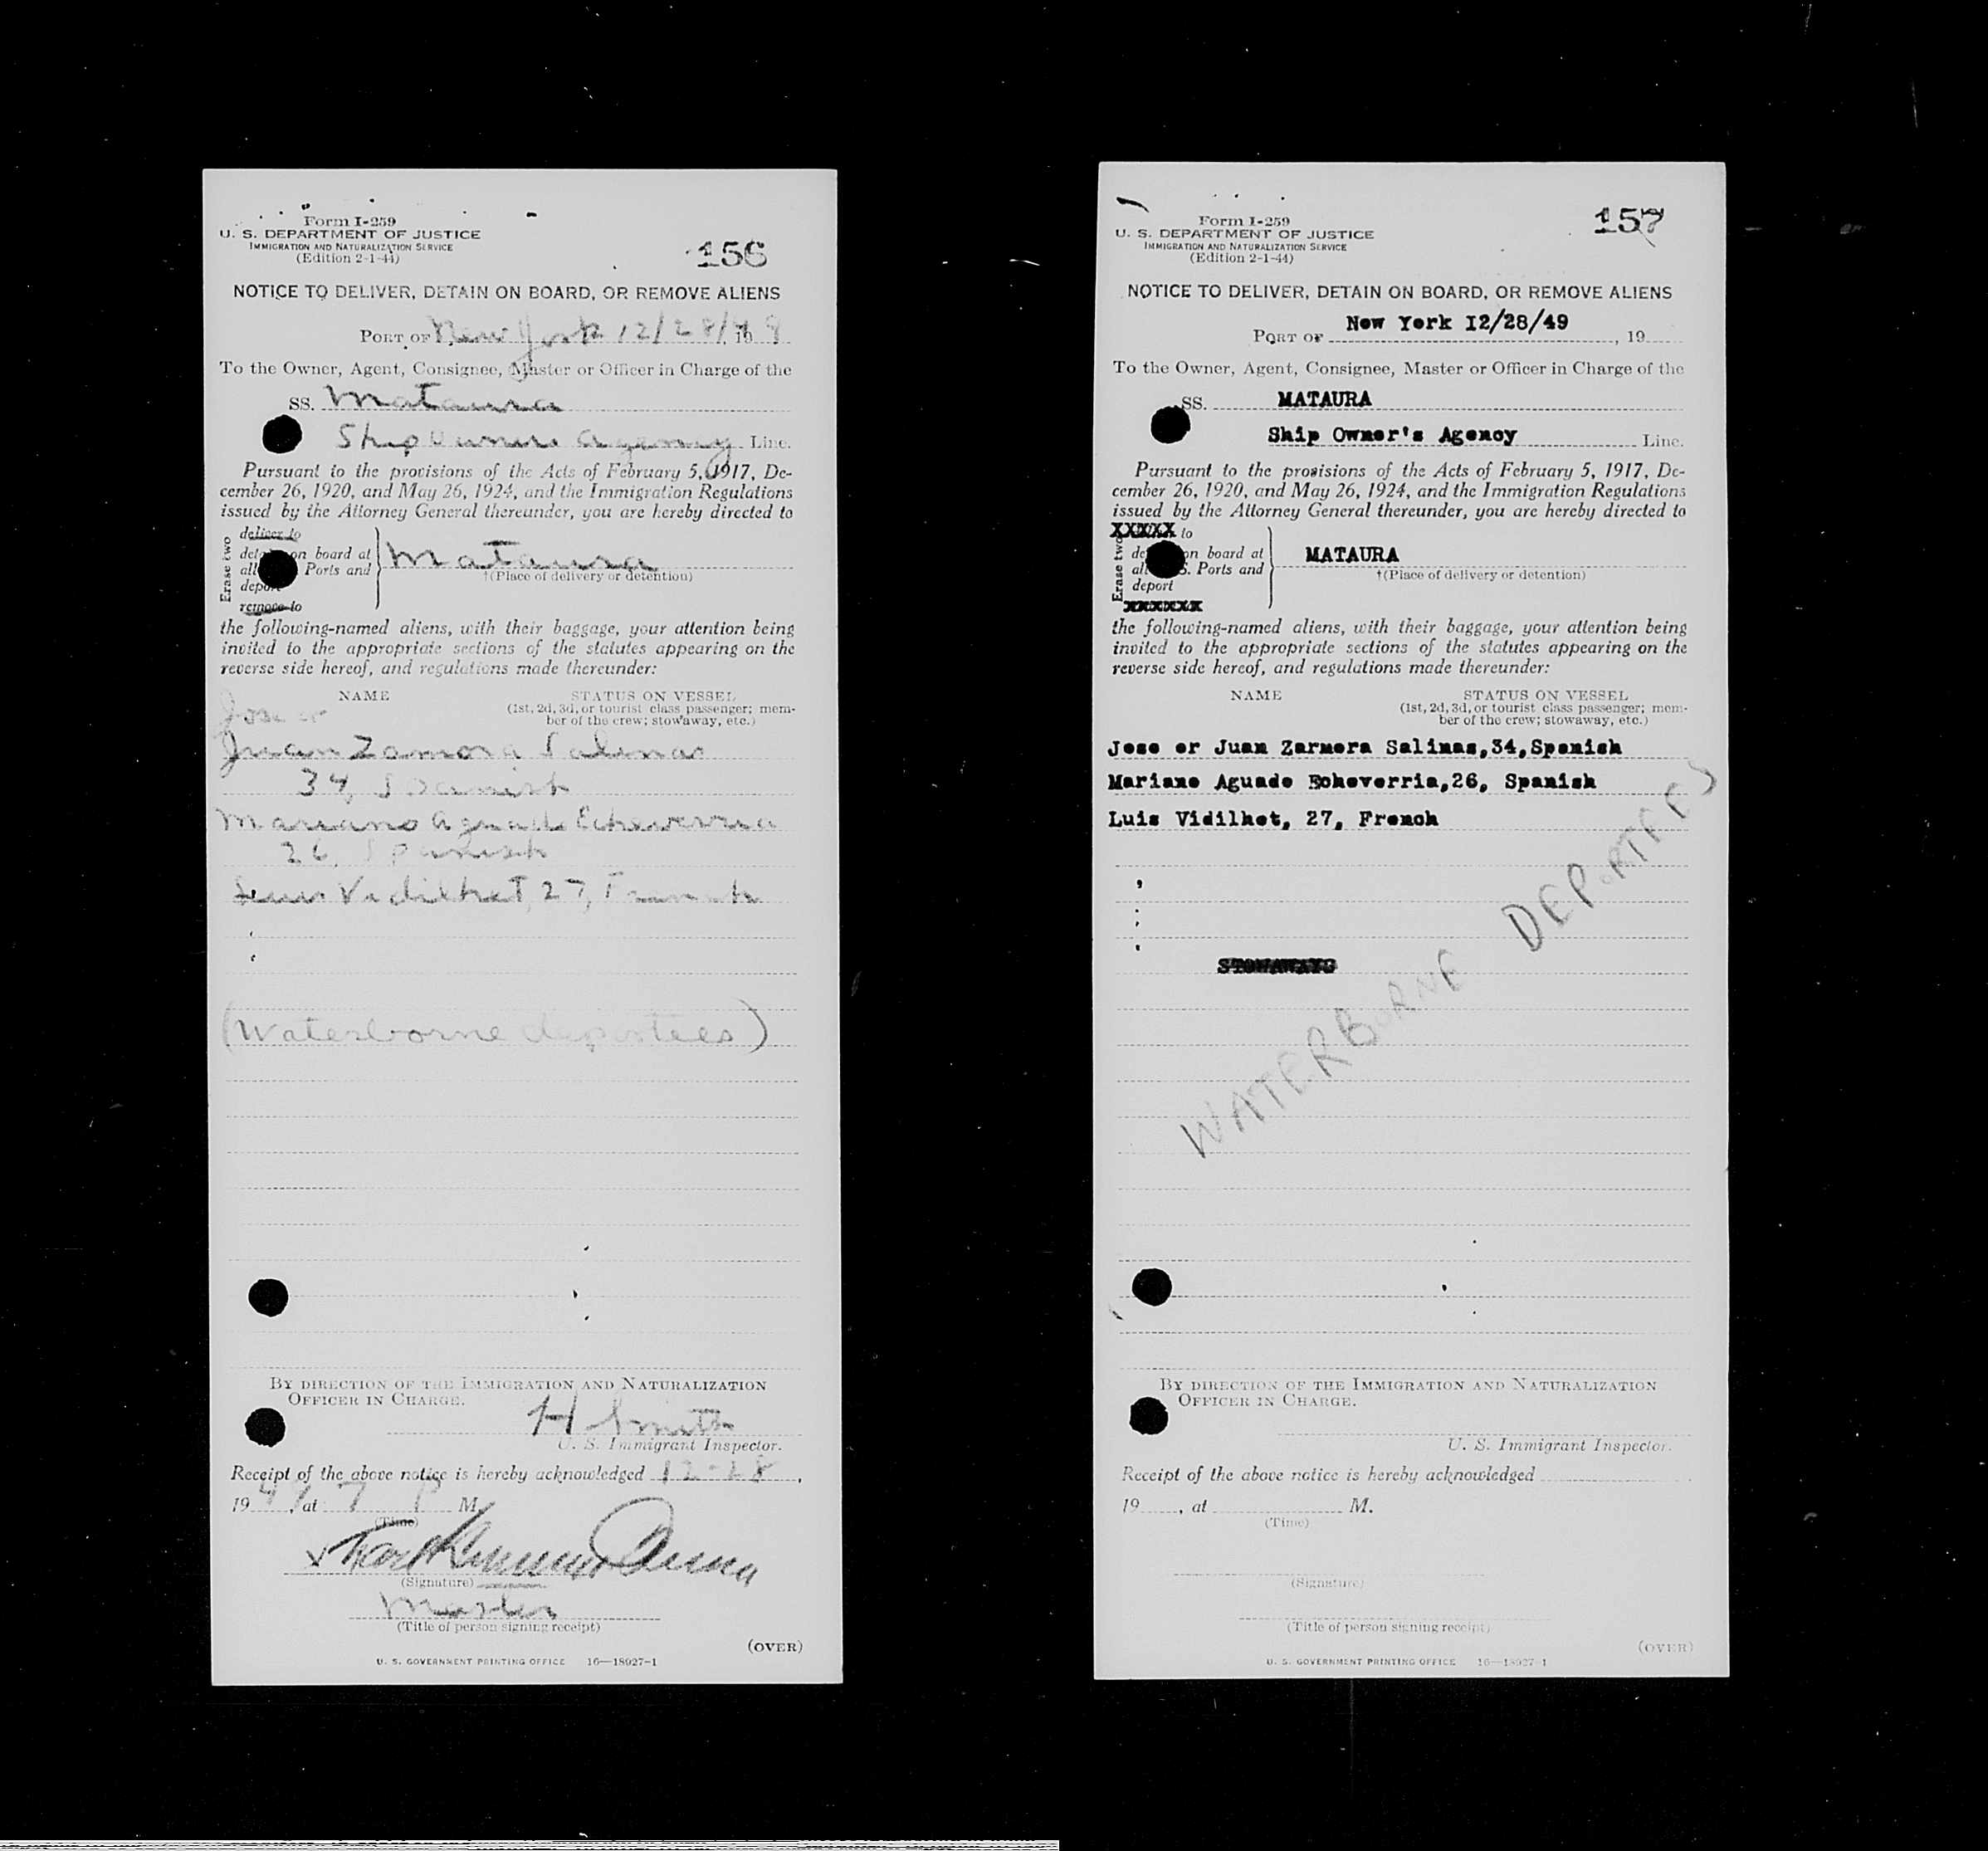 Form I-259
U. S. DEPARTMENT OF JUSTICE
IMMIGRATION AND NATURALIZATION SERVICE
(Edition 2-1-44)
156
NOTICE TO DELIVER, DETAIN ON BOARD, OR REMOVE ALIENS
PORT OF New York 12/28/49, 19
To the Owner, Agent, Consignee, Master or Officer in Charge of the
SS. Mataura
Ship Owners Agency Line.
Pursuant to the provisions of the Acts of February 5, 1917, De-
cember 26, 1920, and May 26, 1924, and the Immigration Regulations
issued by the Attorney General thereunder, you are hereby directed to
Erase two
deliver to
on board at
Ports and
deport
remove to
Mataura
†(Place of delivery or detention)
the following-named aliens, with their baggage, your attention being
invited to the appropriate sections of the statutes appearing on the
reverse side hereof, and regulations made thereunder:
NAME STATUS ON VESSEL
(1st, 2d, 3d, or tourist class passenger; mem-
ber of the crew; stowaway, etc.)
Jose or
Juan Zamora Salinas
34, Spanish
Mariano Aguado Echeverria
26, Spanish
Luis Vidilhet, 27, French
(Waterborne deportees)
BY DIRECTION OF THE IMMIGRATION AND NATURALIZATION
OFFICER IN CHARGE.
H Smith
U. S. Immigrant Inspector.
Receipt of the above notice is hereby acknowledged 12-28,
1949, at 7 P M.
(Time)
(Signature)
Master
(Title of person signing receipt)
(OVER)
U. S. GOVERNMENT PRINTING OFFICE 16—18027-1
Form I-259
U. S. DEPARTMENT OF JUSTICE
IMMIGRATION AND NATURALIZATION SERVICE
(Edition 2-1-44)
157
NOTICE TO DELIVER, DETAIN ON BOARD, OR REMOVE ALIENS
PORT OF New York I2/28/49, 19
To the Owner, Agent, Consignee, Master or Officer in Charge of the
SS. MATAURA
Ship Owner's Agency Line.
Pursuant to the provisions of the Acts of February 5, 1917, De-
cember 26, 1920, and May 26, 1924, and the Immigration Regulations
issued by the Attorney General thereunder, you are hereby directed to
Erase two
XXXXX to
on board at
Ports and
deport
XXXXXX
MATAURA
†(Place of delivery or detention)
the following-named aliens, with their baggage, your attention being
invited to the appropriate sections of the statutes appearing on the
reverse side hereof, and regulations made thereunder:
NAME STATUS ON VESSEL
(1st, 2d, 3d, or tourist class passenger; mem-
ber of the crew; stowaway, etc.)
Jose or Juan Zarmora Salinas,34,Spanish
Mariano Aguado Echeverria,26, Spanish
Luis Vidilhet, 27, French
STOWAWAYS
WATERBORNE DEPORTEES
BY DIRECTION OF THE IMMIGRATION AND NATURALIZATION
OFFICER IN CHARGE.
U. S. Immigrant Inspector.
Receipt of the above notice is hereby acknowledged
19, at M.
(Time)
(Signature)
(Title of person signing receipt)
(OVER)
U. S. GOVERNMENT PRINTING OFFICE 16—18027-1